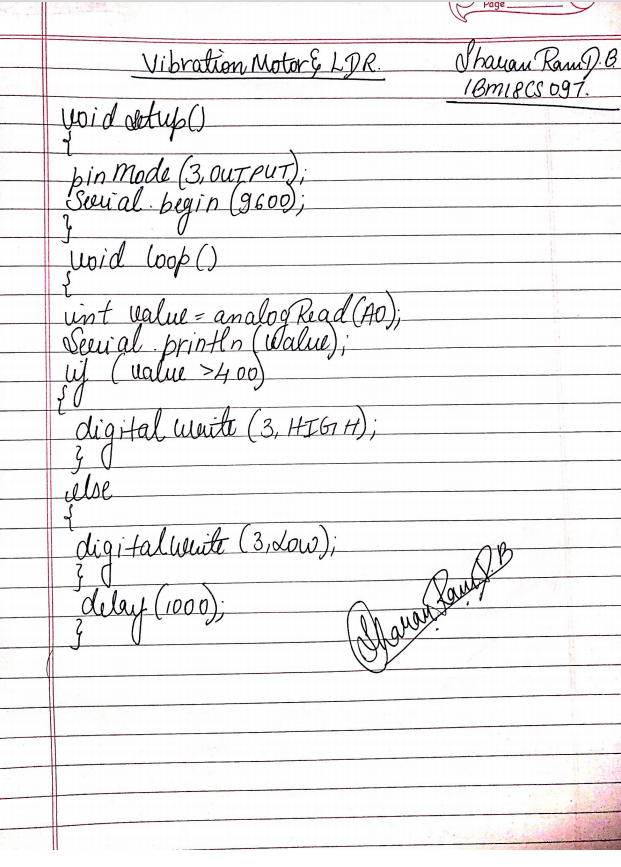 Page
Vibration Motor & LDR.
Sharan Ram D.B
1BM18CS097.
void setup()
{
pinMode (3, OUTPUT);
Serial.begin (9600);
}
void loop()
{
int value = analogRead(A0);
Serial.println(value);
if (value >400)
{
digitalWrite (3, HIGH);
}
else
{
digitalWrite (3, LOW);
}
delay (1000);
}
Sharan Ram D.B